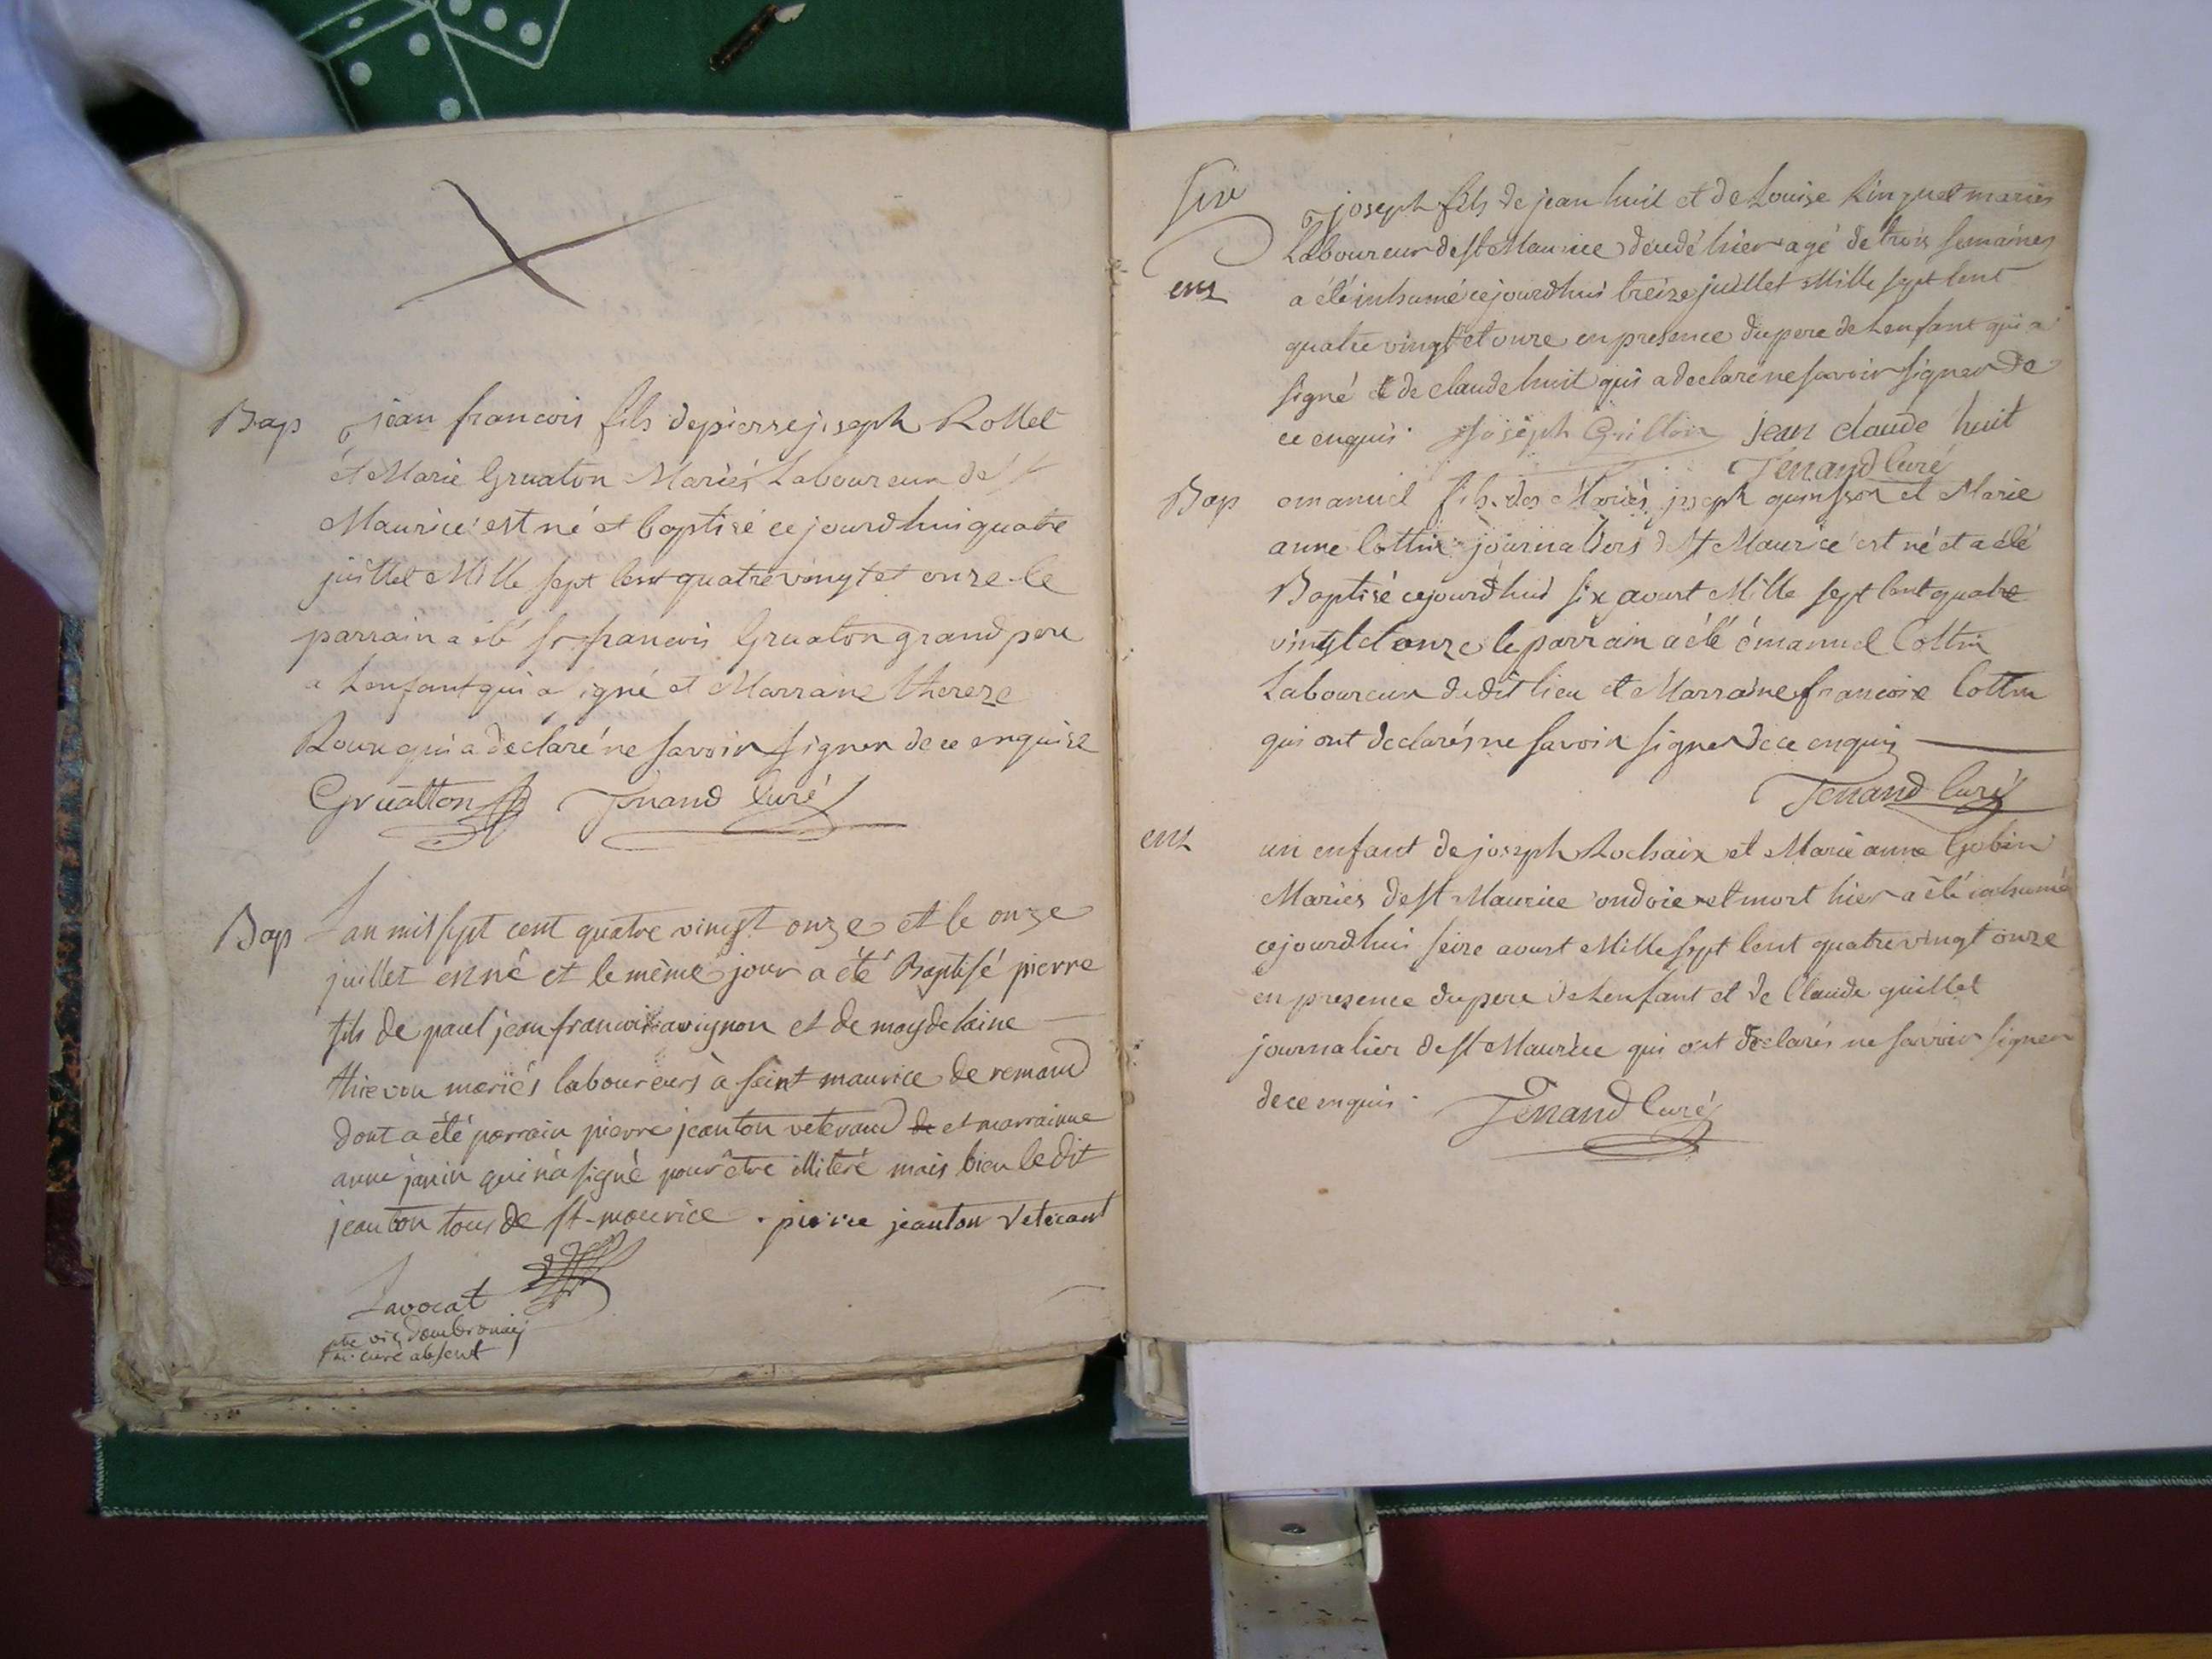 Bap jean francois fils de pierre joseph Rollet
et Marie Gruaton Mariés Laboureur de St
Maurice est né et baptisé ce jourdhui quatre
juillet Mille sept Cent quatre vingt et onze le
parrain a été sr francois Gruaton grand pere
a Lenfant qui a signé et Marraine thereze
Roux qui a declaré ne savoir signer de ce enquise
Gruatton Tenand Curé
Bap Lan mil sept cent quatre vingt onze et le onze
juillet est né et le même jour a été Baptisé pierre
fils de paul jean francois avignon et de magdelaine
thievon mariés laboureurs à saint maurice de remand
dont a été parrain pierre jeanton veteran de et marrainne
anne janin qui n'a signé pour être illiteré mais bien ledit
jeanton tous de st-maurice . pierre jeanton veterant
Lavocat
ptre vic d'ambronay
mr. curé absent
joseph fils de jean huit et de Louise Ringuet mariés
Laboureur de st Maurice decedé hier agé de trois semaines
ent a été inhumé cejourdhui treize juillet Mille sept Cent
quatre vingt et onze en presence du pere de Lenfant qui a
signé et de claude huit qui a declaré ne savoir signer de
ce enquis. Joseph Grillon jean claude huit
Tenand Curé
Bap emanuel fils des Mariés joseph quinsson et Marie
anne Cottin journaliers de st Maurice est né et a été
Baptisé cejourdhui six aoust Mille sept Cent quatre
vingt et onze le parrain a été émanuel Cottin
Laboureur dudit lieu et Marraine francoise Cottin
qui ont declarés ne savoir signer de ce enquis
Tenand Curé
ent un enfant de joseph Rochaix et Marie anne Gobin
Mariés de st Maurice ondoié et mort hier a été inhumé
cejourdhui seize aoust Mille sept Cent quatre vingt onze
en presence du pere de Lenfant et de Claude guillet
journalier de st Maurice qui ont declarés ne savoir signer
de ce enquis. Tenand Curé